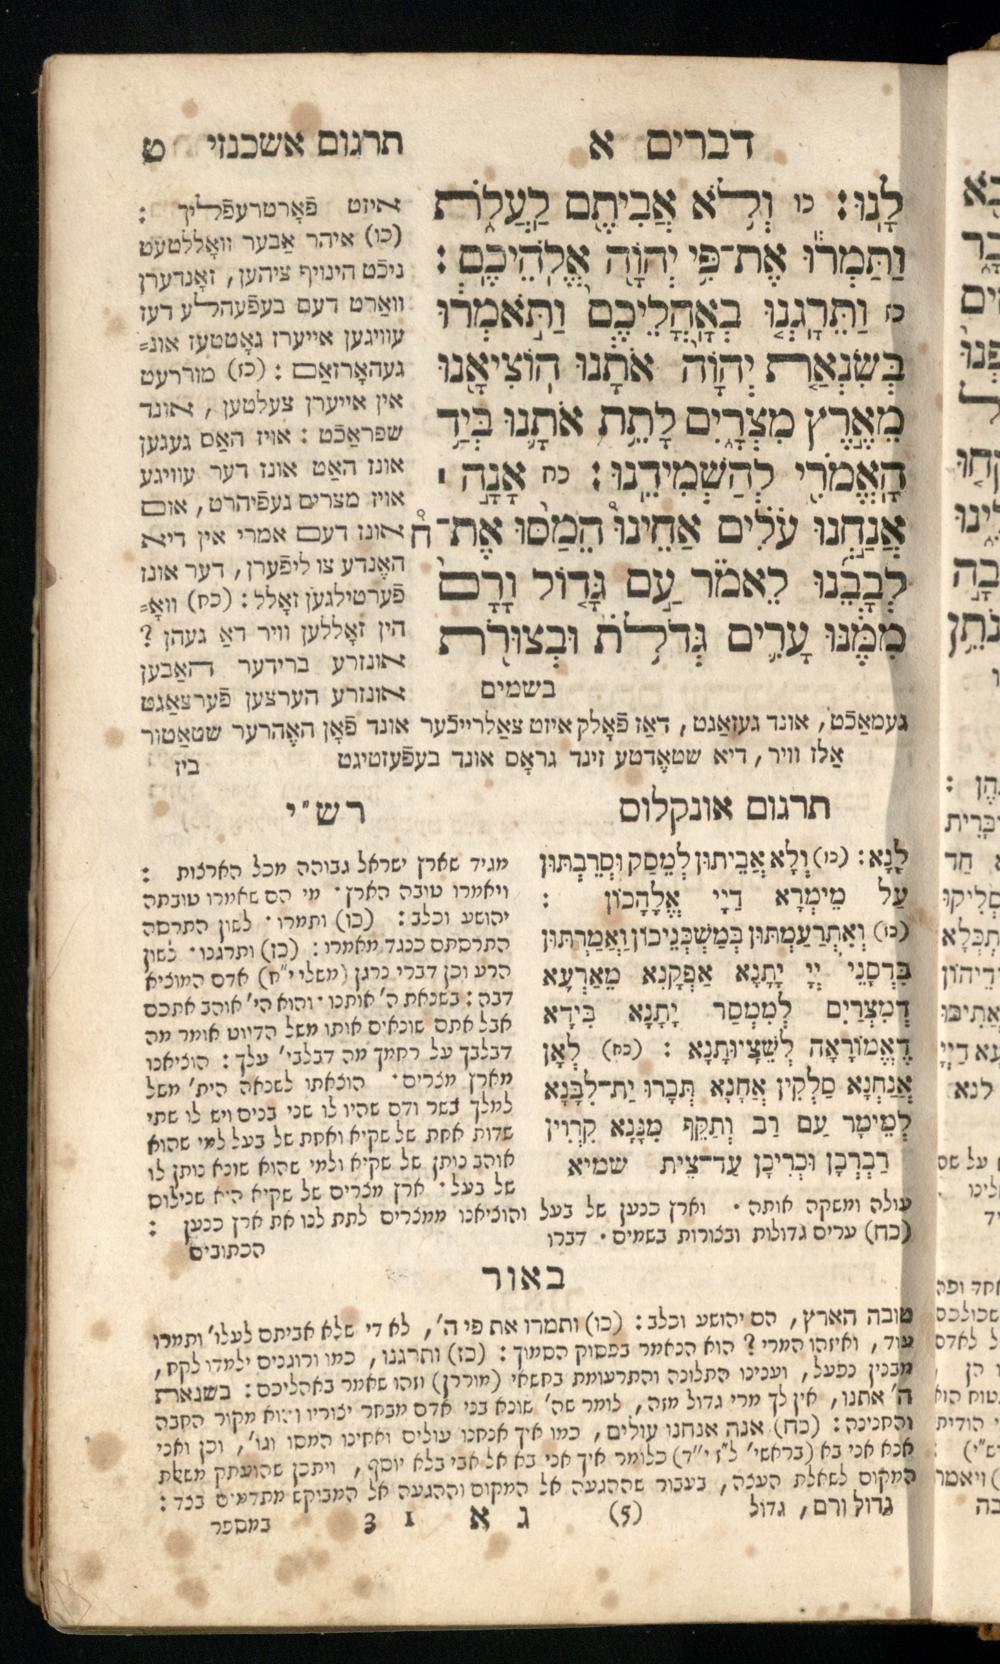 דברים א
תרגום אשכנזי ט
לָנוּ: כו וְלֹא אֲבִיתֶם לַעֲלֹת
וַתַּמְרוּ אֶת־פִּי יְהוָֹה אֱלֹהֵיכֶם:
כז וַתֵּרָגְנוּ בְאָהֳלֵיכֶם וַתֹּאמְרוּ
בְּשִׂנְאַת יְהוָֹה אֹתָנוּ הוֹצִיאָנוּ
מֵאֶרֶץ מִצְרָיִם לָתֵת אֹתָנוּ בְּיַד
הָאֱמֹרִי לְהַשְׁמִידֵנוּ: כח אָנָה ׀
אֲנַחְנוּ עֹלִים אַחֵינוּ הֵמַסּוּ אֶת־
לְבָבֵנוּ לֵאמֹר עַם גָּדוֹל וָרָם
מִמֶּנּוּ עָרִים גְּדֹלֹת וּבְצוּרֹת
בשמים
איזט פֿאָרטרעפֿליך:
(כו) איהר אַבער וואָללטעט
ניכֿט הינויף ציהען, זאָנדערן
וואַרט דעם בעפֿעהלע דעז
עוויגען אייערז גאָטטעז אונ=
געהאָרזאַם: (כז) מוררעט
אין אייערן צעלטען, אונד
שפראַכֿט: אויז האַס געגען
אונז האַט אונז דער עוויגע
אויז מצרים געפֿיהרט, אום
אונז דעם אמרי אין דיא
האֶנדע צו ליפֿערן, דער אונז
פֿערטילגען זאָלל: (כח) וואָ=
הין זאָללען וויר דאַ געהן?
אונזרע ברידער האַבען
אונזרע הערצען פֿערצאַגט
געמאַכֿט, אונד געזאַגט, דאַז פֿאָלק איזט צאַלרייכֿער אונד פֿאָן האֶהרער שטאַטור
אַלז וויר, דיא שטאֶדטע זינד גראָס אונד בעפֿעזטיגט
ביז
תרגום אונקלוס
לָנָא: (כו) וְלָא אֲבֵיתוּן לְמֵסַק וְסָרֵבְתּוּן
עַל מֵימְרָא דַיְיָ אֱלָהָכוֹן:
(כז) וְאִתְרַעַמְתּוּן בְּמַשְׁכְּנֵיכוֹן וַאֲמַרְתּוּן
בִּדְסָנֵי יְיָ יָתָנָא אַפְּקָנָא מֵאַרְעָא
דְמִצְרָיִם לְמִמְסַר יָתָנָא בִּידָא
דֶאֱמוֹרָאָה לְשֵׁצָיוּתָנָא: (כח) לְאָן
אֲנַחְנָא סַלְקִין אֲחָנָא תְּבָרוּ יַת־לִבָּנָא
לְמֵימַר עַם רַב וְתַקִּף מִנָּנָא קִרְוִין
רַבְרְבָן וּכְרִיכָן עַד־צֵית שמיא
רש"י
מגיד שארץ ישראל גבוהה מכל הארצות:
ויאמרו טובה הארץ· מי הם שאמרו טובתה
יהושע וכלב: (כו) ותמרו· לשון התרסה
התרסתם כנגד מאמרו: (כז) ותרגנו· לשון
הרע וכן דברי נרגן (משלי י"ח) אדם המוציא
דבה: בשנאת ה' אותנו· והוא הי' אוהב אתכם
אבל אתם שונאים אותו משל הדיוט אומר מה
דבלבך על רחמך מה דבלבי' עלך: הוציאנו
מארץ מצרים· הוצאתו לשנאה הית' משל
למלך בשר ודם שהיו לו שני בנים ויש לו שתי
שדות אחת של שקיא ואחת של בעל למי שהוא
אוהב נותן של שקיא ולמי שהוא שונא נותן לו
של בעל· ארץ מצרים של שקיא היא שנילוס
עולה ומשקה אותה· וארץ כנען של בעל והוציאנו ממצרים לתת לנו את ארץ כנען:
(כח) ערים גדולות ובצורות בשמים· דברו
הכתובים
באור
טובה הארץ, הם יהושע וכלב: (כו) ותמרו את פי ה', לא די שלא אביתם לעלו' ותמרו
עוד, ואיזהו המרי? הוא הנאמר בפסוק הסמוך: (כז) ותרגנו, כמו ורוגנים ילמדו לקח,
מבנין נפעל, וענינו התלונה והתרעומת בחשאי (מוררן) וזהו שאמר באהליכם: בשנאת
ה' אתנו, אין לך מרי גדול מזה, לומר שה' שונא בני אדם מבחר יצוריו והוא מקור החבה
והחנינה: (כח) אנה אנחנו עולים, כמו איך אנחנו עולים ואחינו המסו וגו', וכן ואני
אנא אני בא (בראשי' ל"ז י"ד) כלומר איך אני בא אל אבי בלא יוסף, ויתכן שהועתק משלת
המקום לשאלת הענה, בעבור שההגעה אל המקום וההגעה אל המבוקש מתדמים בנד:
גדול ורם, גדול
(5)
ג א 1 3
במספר